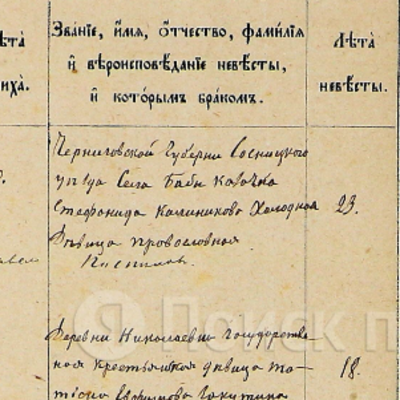 ѢТА
ИХА.
Званіе, имя, отчество, фамилія
и вѣроисповѣданіе невѣсты,
и которымъ бракомъ.
Лѣта
невѣсты.
Черниговской Губерни Сосницкого
уѣзда Села Бабы Казачка
Стефанида Калиникова Холодная 23.
Дѣвица провославная
Деревни Николаевки Государстве-
ная крестьянская дѣвица Та-
тіяна Никитина 18.
Поиск п